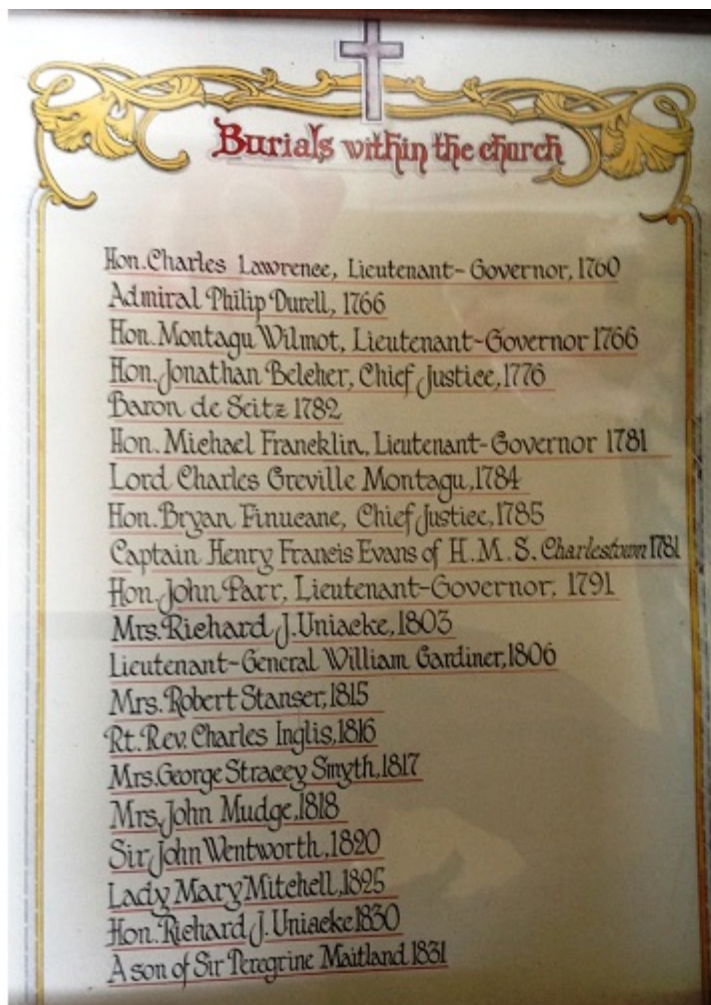 Burials within the church
Hon. Charles Lawrence, Lieutenant-Governor, 1760
Admiral Philip Durell, 1766
Hon. Montagu Wilmot, Lieutenant-Governor 1766
Hon. Jonathan Belcher, Chief Justice, 1776
Baron de Seitz 1782
Hon. Michael Francklin, Lieutenant-Governor 1781
Lord Charles Greville Montagu, 1784
Hon. Bryan Finucane, Chief Justice, 1785
Captain Henry Francis Evans of H.M.S. Charlestown 1781
Hon. John Parr, Lieutenant-Governor, 1791
Mrs. Richard J. Uniacke, 1803
Lieutenant-General William Gardiner, 1806
Mrs. Robert Stanser, 1815
Rt. Rev. Charles Inglis, 1816
Mrs. George Stracey Smyth, 1817
Mrs. John Mudge, 1818
Sir John Wentworth, 1820
Lady Mary Mitchell, 1825
Hon. Richard J. Uniacke 1830
A son of Sir Peregrine Maitland 1831